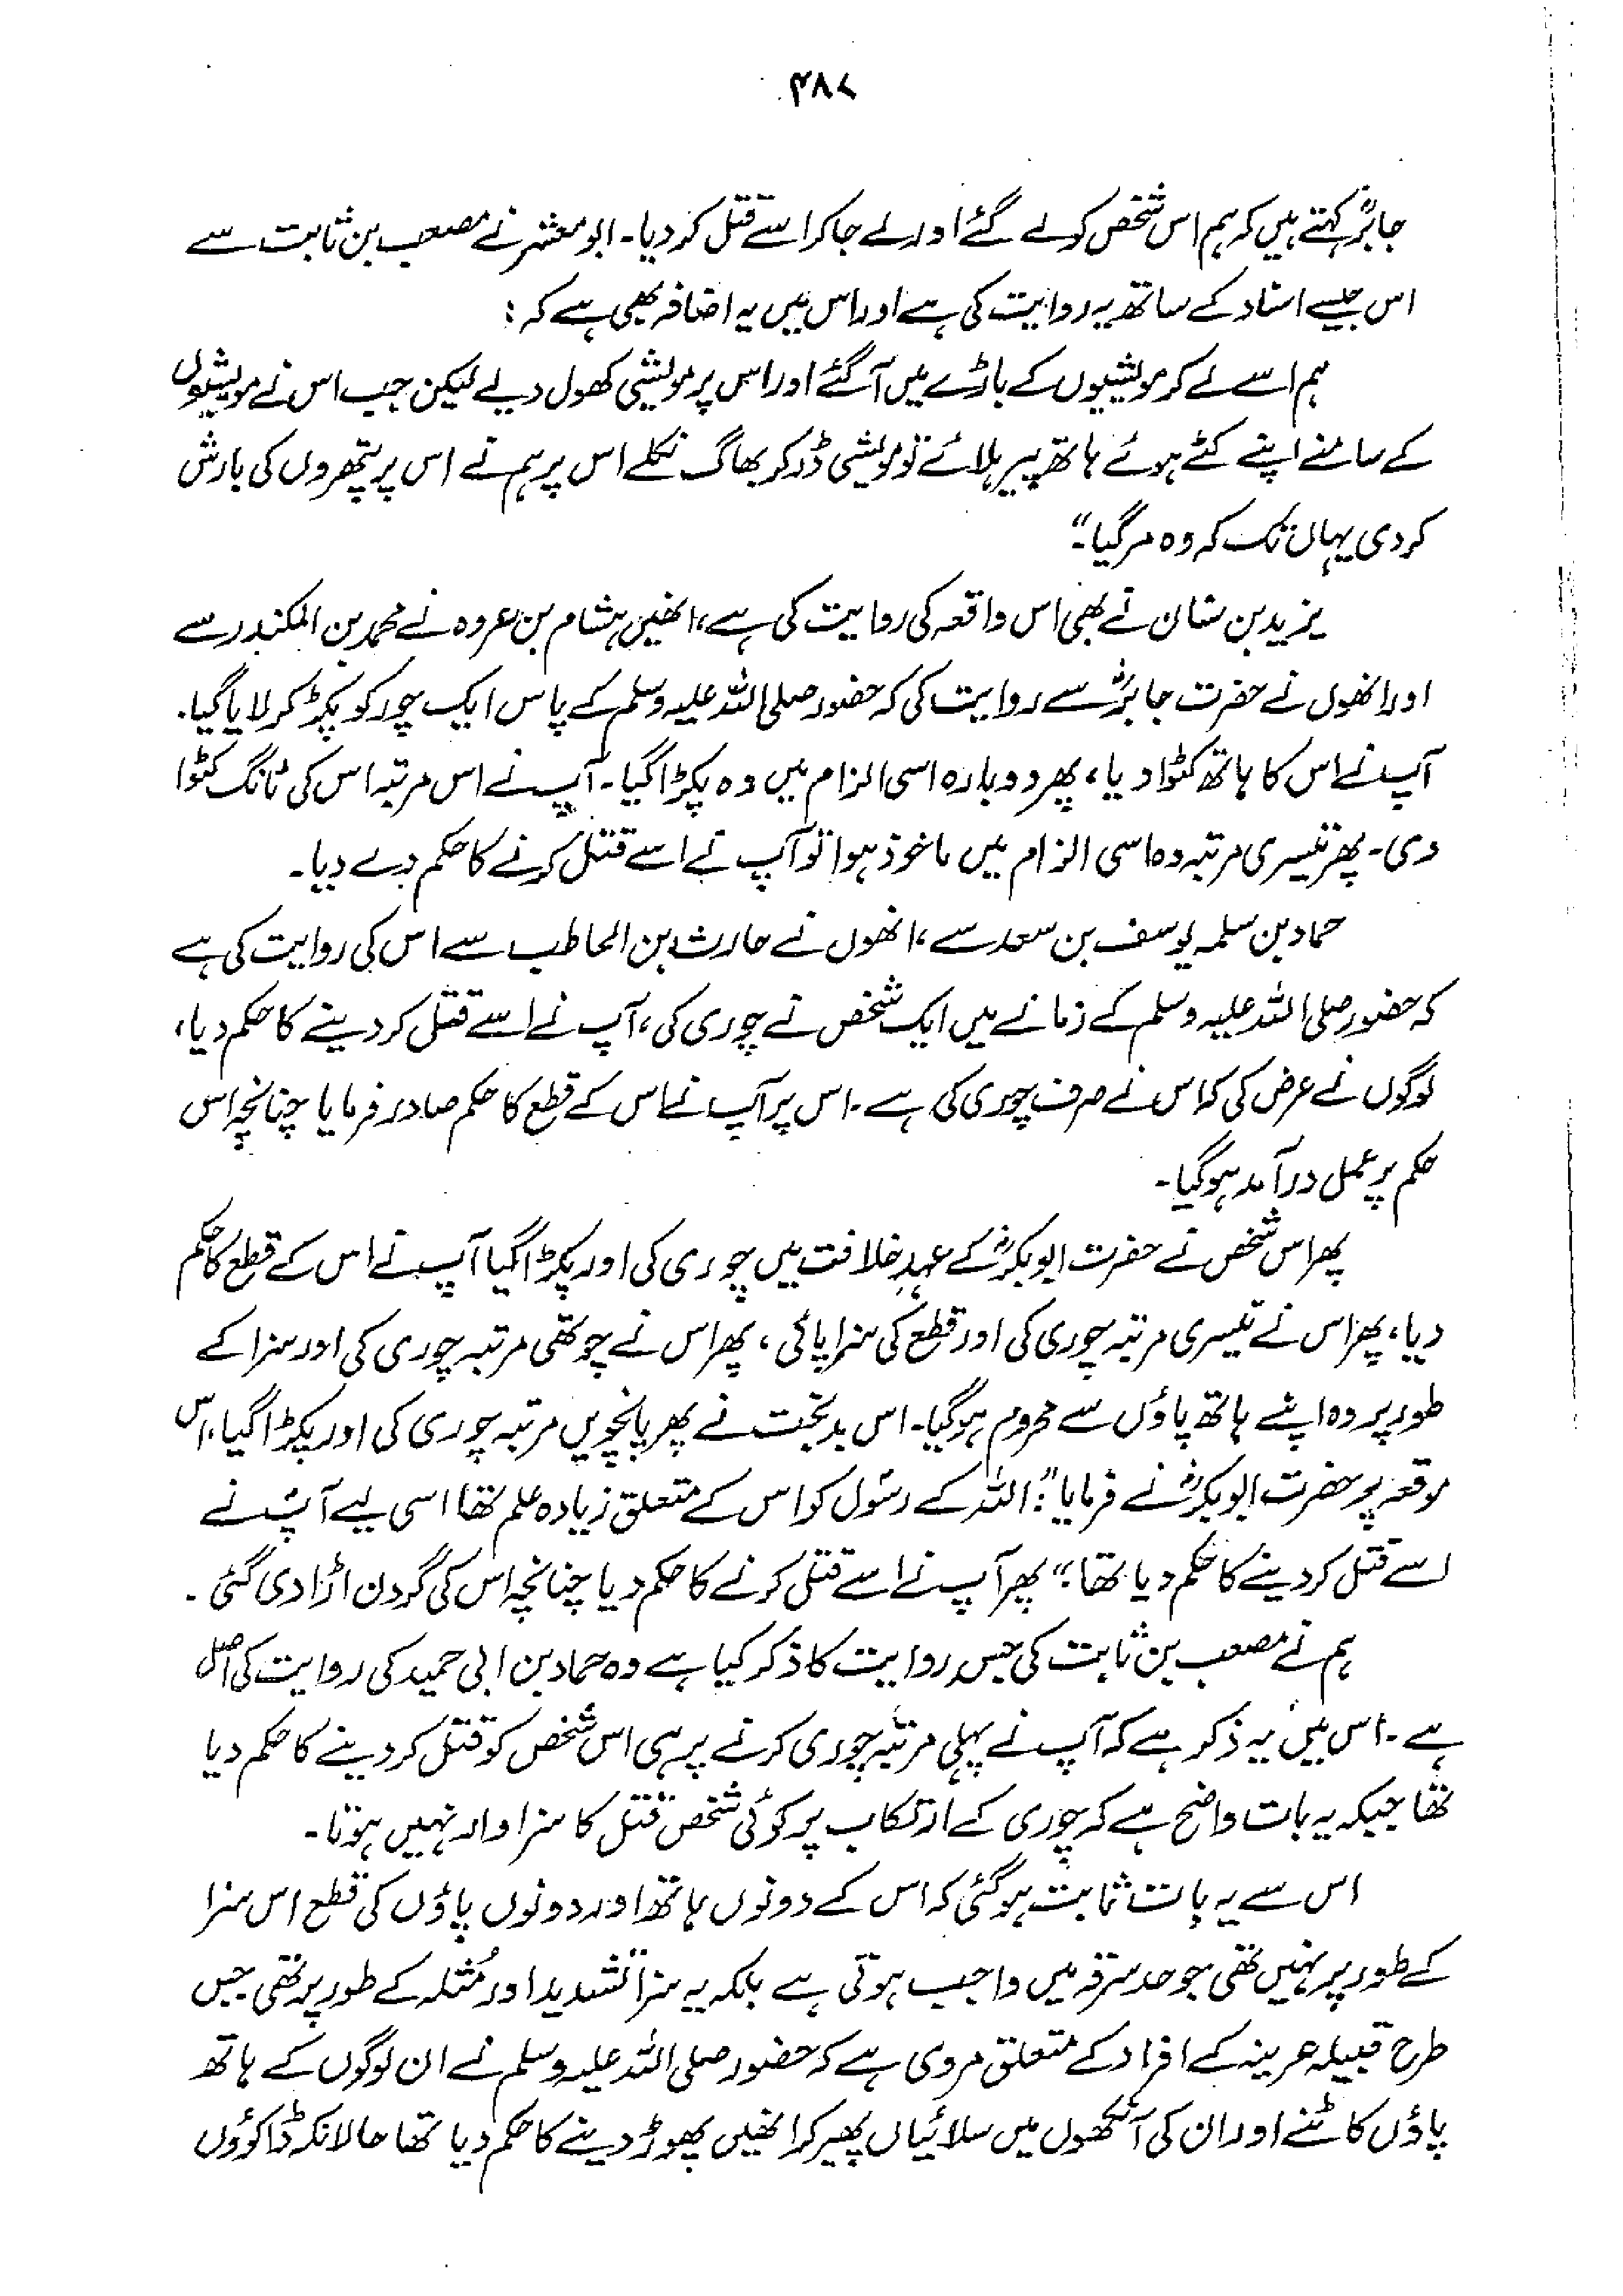 ۴۸۷
جابرؓ کہتے ہیں کہ ہم اس شخص کو لے گئے اور لے جا کر اسے قتل کر دیا۔ ابو معشر نے مصعب بن ثابت سے
اس جیسے اسناد کے ساتھ یہ روایت کی ہے اور اس میں یہ اضافہ بھی ہے کہ :
ہم اسے لے کر مویشیوں کے باڑے میں آ گئے اور اس پر مویشی کھول دیے لیکن جب اس نے مویشیوں
کے سامنے اپنے کٹے ہوئے ہاتھ پیر ہلائے تو مویشی ڈر کر بھاگ نکلے اس پر ہم نے اس پر پتھروں کی بارش
کر دی یہاں تک کہ وہ مر گیا۔"
یزید بن سنان نے بھی اس واقعہ کی روایت کی ہے، انھیں ہشام بن عروہ نے محمد بن المکندر سے
اور انھوں نے حضرت جابرؓ سے روایت کی کہ حضور صلی اللہ علیہ وسلم کے پاس ایک چور کو پکڑ کر لایا گیا۔
آپ نے اس کا ہاتھ کٹوا دیا، پھر دوبارہ اسی الزام میں وہ پکڑا گیا۔ آپ نے اس مرتبہ اس کی ٹانگ کٹوا
دی۔ پھر تیسری مرتبہ وہ اسی الزام میں ماخوذ ہوا تو آپ نے اسے قتل کرنے کا حکم دے دیا۔
حماد بن سلمہ یوسف بن سعد سے، انھوں نے حارث بن الحاطب سے اس کی روایت کی ہے
کہ حضور صلی اللہ علیہ وسلم کے زمانے میں ایک شخص نے چوری کی، آپ نے اسے قتل کر دینے کا حکم دیا،
لوگوں نے عرض کی کہ اس نے صرف چوری کی ہے۔ اس پر آپ نے اس کے قطع کا حکم صادر فرمایا چنانچہ اس
حکم پر عمل درآمد ہو گیا۔
پھر اس شخص نے حضرت ابوبکرؓ کے عہدِ خلافت میں چوری کی اور پکڑا گیا آپ نے اس کے قطع کا حکم
دیا، پھر اس نے تیسری مرتبہ چوری کی اور قطع کی سزا پائی، پھر اس نے چوتھی مرتبہ چوری کی اور سزا کے
طور پر وہ اپنے ہاتھ پاؤں سے محروم ہو گیا۔ اس بدبخت نے پھر پانچویں مرتبہ چوری کی اور پکڑا گیا، اس
موقعہ پر حضرت ابوبکرؓ نے فرمایا: "اللہ کے رسول کو اس کے متعلق زیادہ علم تھا اسی لیے آپ نے
اسے قتل کر دینے کا حکم دیا تھا۔" پھر آپ نے اسے قتل کرنے کا حکم دیا چنانچہ اس کی گردن اڑا دی گئی۔
ہم نے مصعب بن ثابت کی جس روایت کا ذکر کیا ہے وہ حماد بن ابی حمید کی روایت کی اصل
ہے۔ اس میں یہ ذکر ہے کہ آپ نے پہلی مرتبہ چوری کرنے پر ہی اس شخص کو قتل کر دینے کا حکم دیا
تھا جبکہ یہ بات واضح ہے کہ چوری کے ارتکاب پر کوئی شخص قتل کا سزاوار نہیں ہوتا۔
اس سے یہ بات ثابت ہو گئی کہ اس کے دونوں ہاتھ اور دونوں پاؤں کی قطع اس سزا
کے طور پر نہیں تھی جو حد سرقہ میں واجب ہوتی ہے بلکہ یہ سزا تشدید اور مُثلہ کے طور پر تھی جس
طرح قبیلہ عرینہ کے افراد کے متعلق مروی ہے کہ حضور صلی اللہ علیہ وسلم نے ان لوگوں کے ہاتھ
پاؤں کاٹنے اور ان کی آنکھوں میں سلائیاں پھیر کر انھیں پھوڑ دینے کا حکم دیا تھا حالانکہ ڈاکوؤں